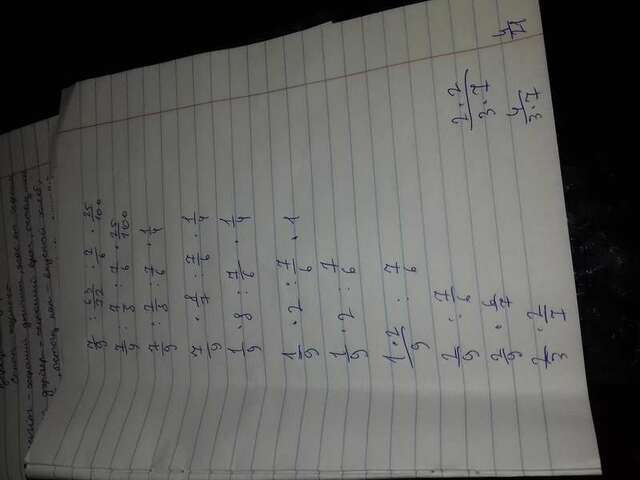 7/9 : 63/72 : 7/6 · 25/100
7/9 : 7/8 : 7/6 · 25/100
7/9 : 7/8 : 7/6 · 1/4
7/9 · 8/7 : 7/6 · 1/4
1/9 · 8 : 7/6 · 1/4
1/9 · 2 : 7/6 · 1
1/9 · 2 : 7/6
1·2/9 : 7/6
2/9 : 7/6
2/9 · 6/7
2/3 · 2/7
2·2/3·7
4/3·7
4/21